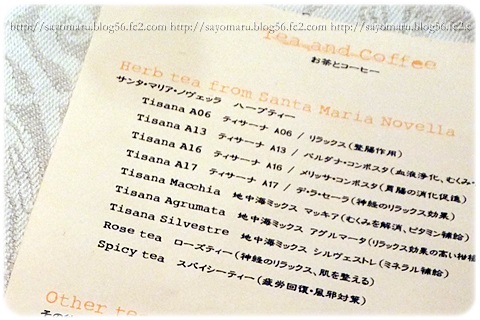 http://sayomaru.blog56.fc2.com/ http://sayomaru.blog56.fc2.com/ http://sayomaru.blog56.fc2.com/
Tea and Coffee
お茶とコーヒー
Herb tea from Santa Maria Novella
サンタ・マリア・ノヴェッラ ハーブティー
Tisana A06 ティサーナ A06 / リラックス(整腸作用)
Tisana A13 ティサーナ A13 / バルダナ・コンポスタ(血液浄化、むくみ・
Tisana A16 ティサーナ A16 / メリッサ・コンポスタ(胃腸の消化促進)
Tisana A17 ティサーナ A17 / デ・ラ・セーラ(神経のリラックス効果)
Tisana Macchia 地中海ミックス マッキア(むくみを解消、ビタミン補給)
Tisana Agrumata 地中海ミックス アグルマータ(リラックス効果の高い柑橘
Tisana Silvestre 地中海ミックス シルヴェストレ(ミネラル補給)
Rose tea ローズティー(神経のリラックス、肌を整える)
Spicy tea スパイシーティー(疲労回復・風邪対策)
Other te